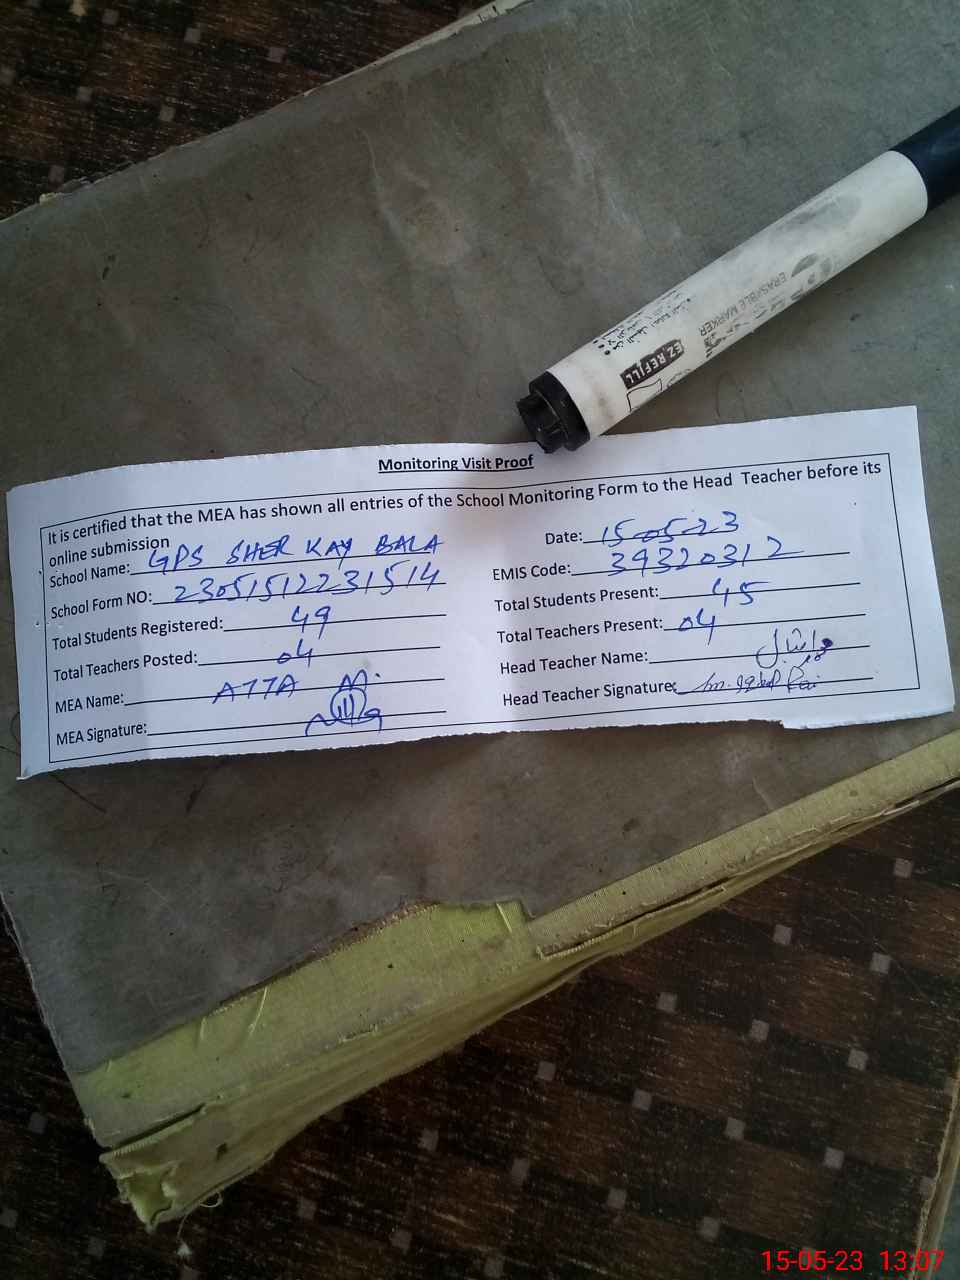 EZ REFILL
ERASABLE MARKER
Monitoring Visit Proof
It is certified that the MEA has shown all entries of the School Monitoring Form to the Head Teacher before its
online submission
School Name: GPS SHER KAY BALA
Date: 15-05-23
School Form NO: 23051512231514
EMIS Code: 39320312
Total Students Registered: 49
Total Students Present: 45
Total Teachers Posted: 04
Total Teachers Present: 04
MEA Name: ATTA M.
Head Teacher Name:
MEA Signature:
Head Teacher Signature:
15-05-23 13:07